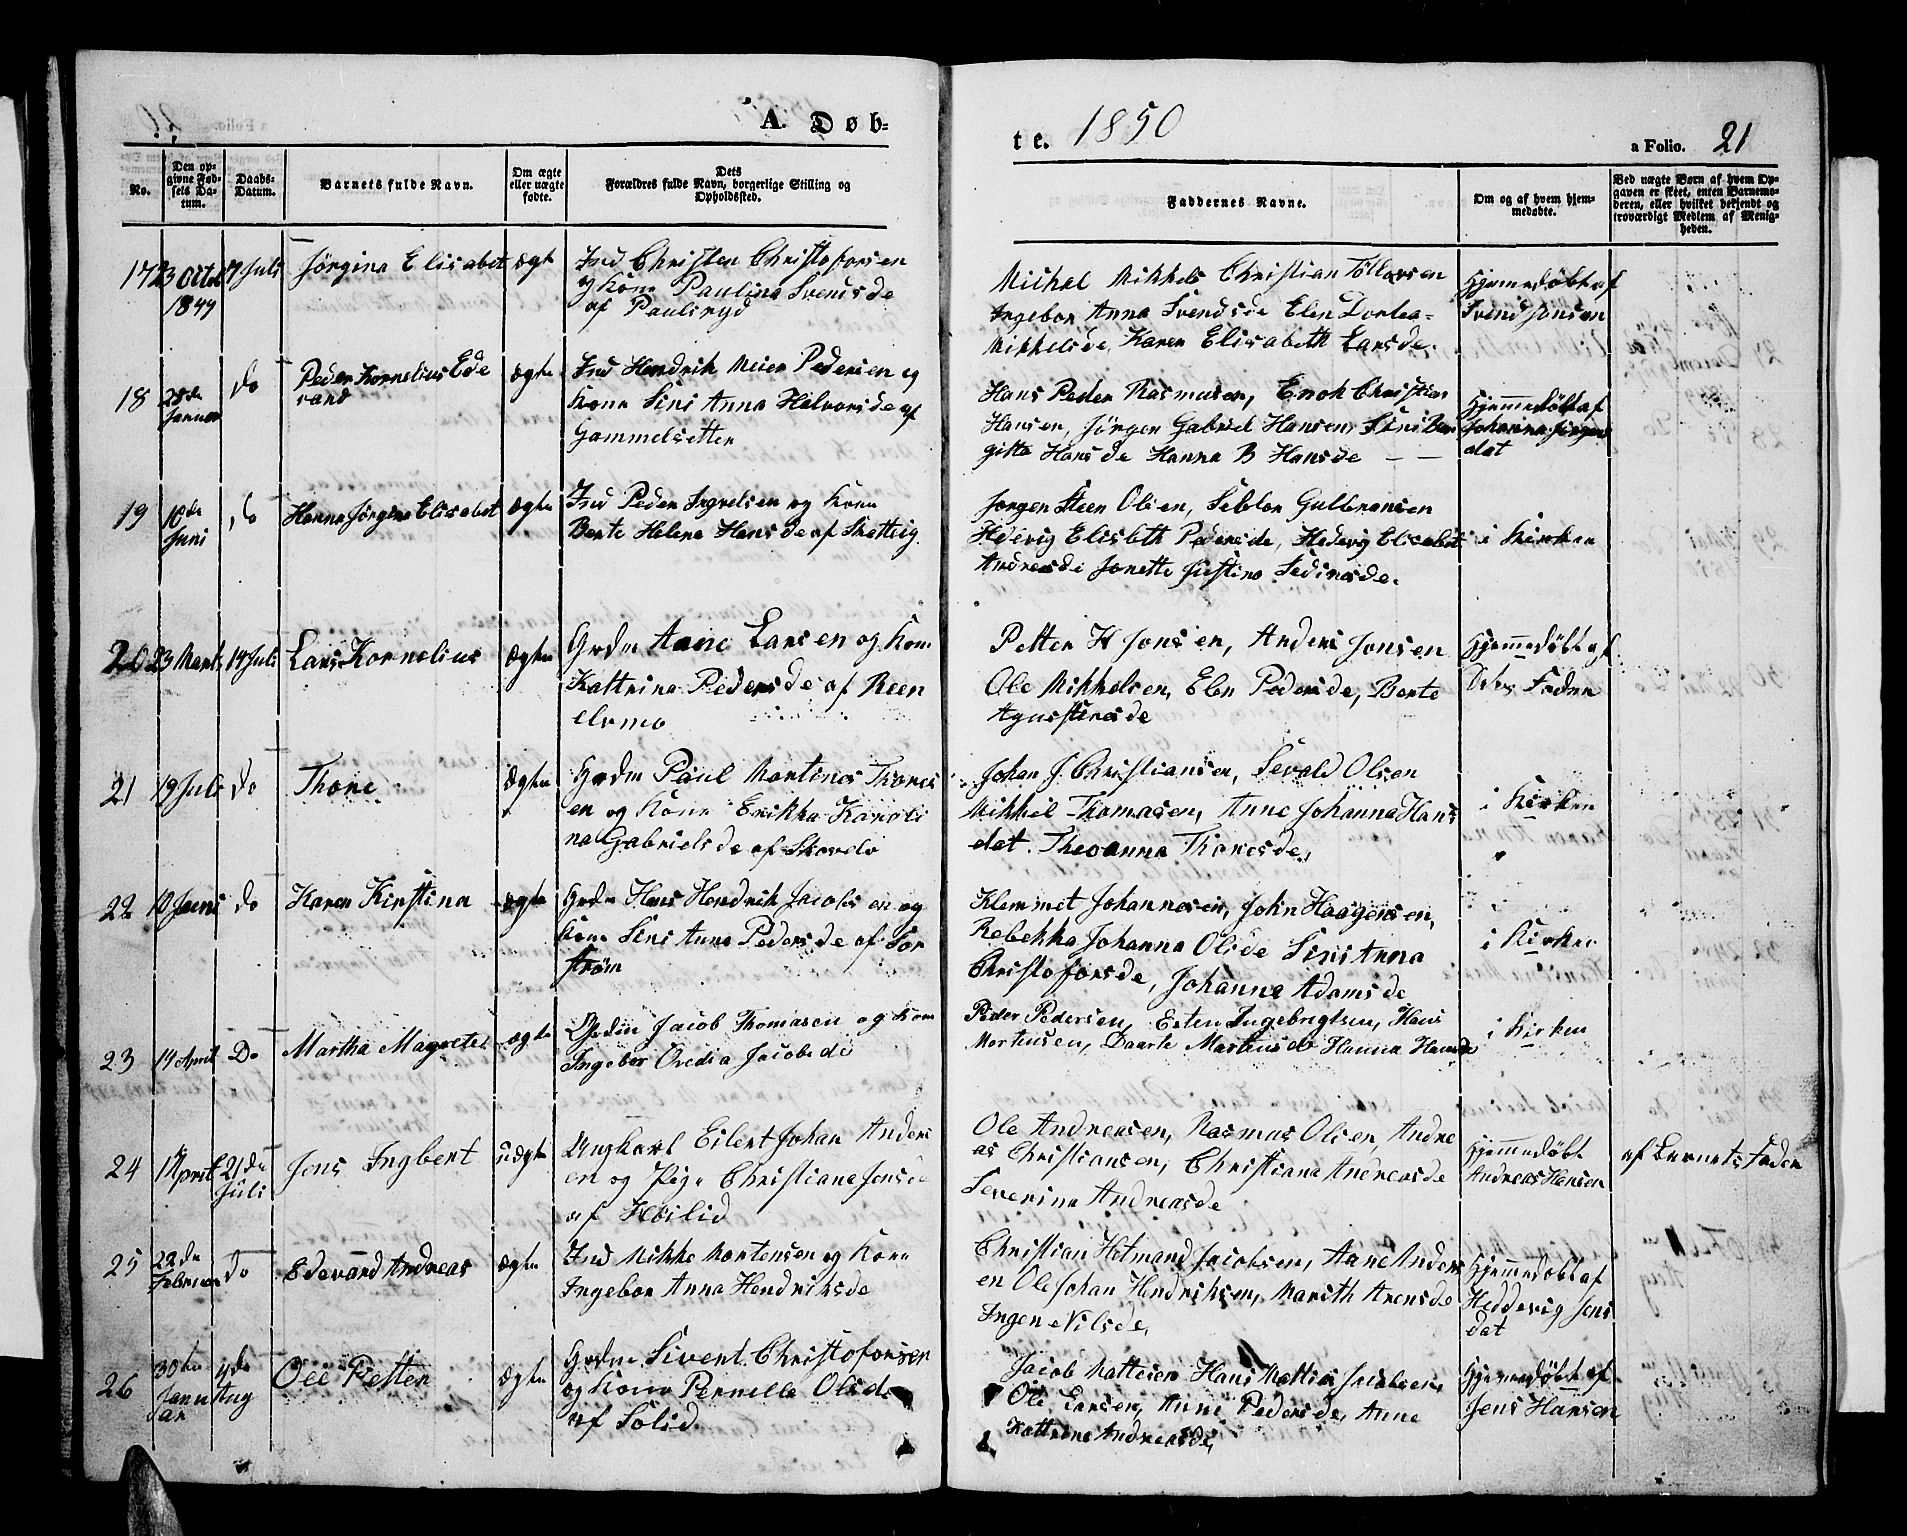 A. Døb-
te. 1850
a Folio. 21
No.
Den op-
givne Fød-
sels Da-
tum.
Daabs-
Datum.
Barnets fulde Navn.
Om ægte
eller uægte
fødte.
Dets
Forældres fulde Navn, borgerlige Stilling og
Opholdssted.
Faddernes Navne.
Om og af hvem hjem-
medøbte.
Ved uægte Børn af hvem Op-
gaven er skeet, enten Barnemo-
deren, eller hvilket bekjendt og
troværdigt Medlem af Menig-
heden.
17 23 Octob 7 Juli Jørgina Elisabet ægt Ind Christen Christoforsen
1849 og Kone Paulina Svensde
af Paulsryd
Michel Mikkels Christian Tollersen
Ingebor Anna Svendsde Elen Dortea
Mikkelsde, Karen Elisabeth Larsde.
Hjemmedøbt af
Svend Jonsen
18 28de Januar do Peder Kornelius Ede
vard
ægte Ind Hendrik Meier Pedersen og
Kone Sini Anna Halvorsde af
Gammelsetter
Hans Peder Rasmusen, Enok Christian
Hansen, Jørgen Gabriel Hansen, Sini Ber
gitta Hansde Hanna B Hansde
Hjemmedøbt af
Johanna Jørgens
dat
19 10de Juni do Hanna Jørgine Elisabet ægte Ind Peder Ingvelsen og Kone
Berte Helena Hansde af
Jørgen Steen Olsen, Gulbransen
Hedevig Elisbth Pedersde, Hedevig Elisabet
Andreasde Jonette Justina
i Kirken
20 23 Marts 14 Juli Lars Kornelius ægte Grdm Aane Larsen og Kone
Kattrina Pedersde af Reen
elvmo
Petter H Jonsen, Anders Jonsen
Ole Mikkelsen, Elen Pedersde, Berte
Agustinesde
Hjemmedøbt af
Dets Fader
21 19 Juli do Thore ægte Grdm Paul Mortines Thores
en og Kone Erikka Karoli
na Gabrielsde af
Johan J. Christiansen, Sevald Olsen
Mikkel Thomasen, Anne Johanna Hans
dat. Theoanna Thoresde,
i Kirken
22 10 Juni do Karen Kirstina ægte Grdm Hans Hendrik Jacobsen og
Kone Sini Anna Pedersde af Sør
strøm
Klemmet Johannesen, John Haagensen,
Rebekka Johanna Olsde Sini Anna
Christoforsde, Johanna Adamsde
i Kirken
23 14 April Do Martha Magrete ægte Grdm Jacob Thomasen og Kone
Ingebor Ovedia Jacobsde
Peder Pedersen, Esten Ingebrigtsen, Hans
Mortensen, Martinusde Hanna Hansde
i Kirken
24 April 21de Juli Jens Ingbert uægte Ungkarl Eilert Johan Anders
en og Pige Christiana Jensde
af Høilid
Ole Andreasen, Rasmus Olsen, Andre
as Christiansen, Christiana Andreasde
Severina Andreasde
Hjemmedøbt
Andreas Hansen
af Barnets Fader
25 22de Februar do Edevard Andreas ægte Ind Mikke Mortensen og Kone
Ingebor Anna Hendriksde
Christian Hetmand Jacobsen, Aane Anders
en Ole Johan Hendriksen, Marith Arensde
Ingen Nilsde,
Hjemmedøbt af
Heddevig Jens
dat
26 30te Januar 4de Aug Ole Petter ægte Grdm Sivert Christofersen
og Kone Pernella Olsde
af Solid
Jacob Mattisen Hans Mattias Jacobsen,
Ole Larsen, Anne Pedersde, Anne
Kattrine Andreasde,
Hjemmedøbt af
Jens Hansen